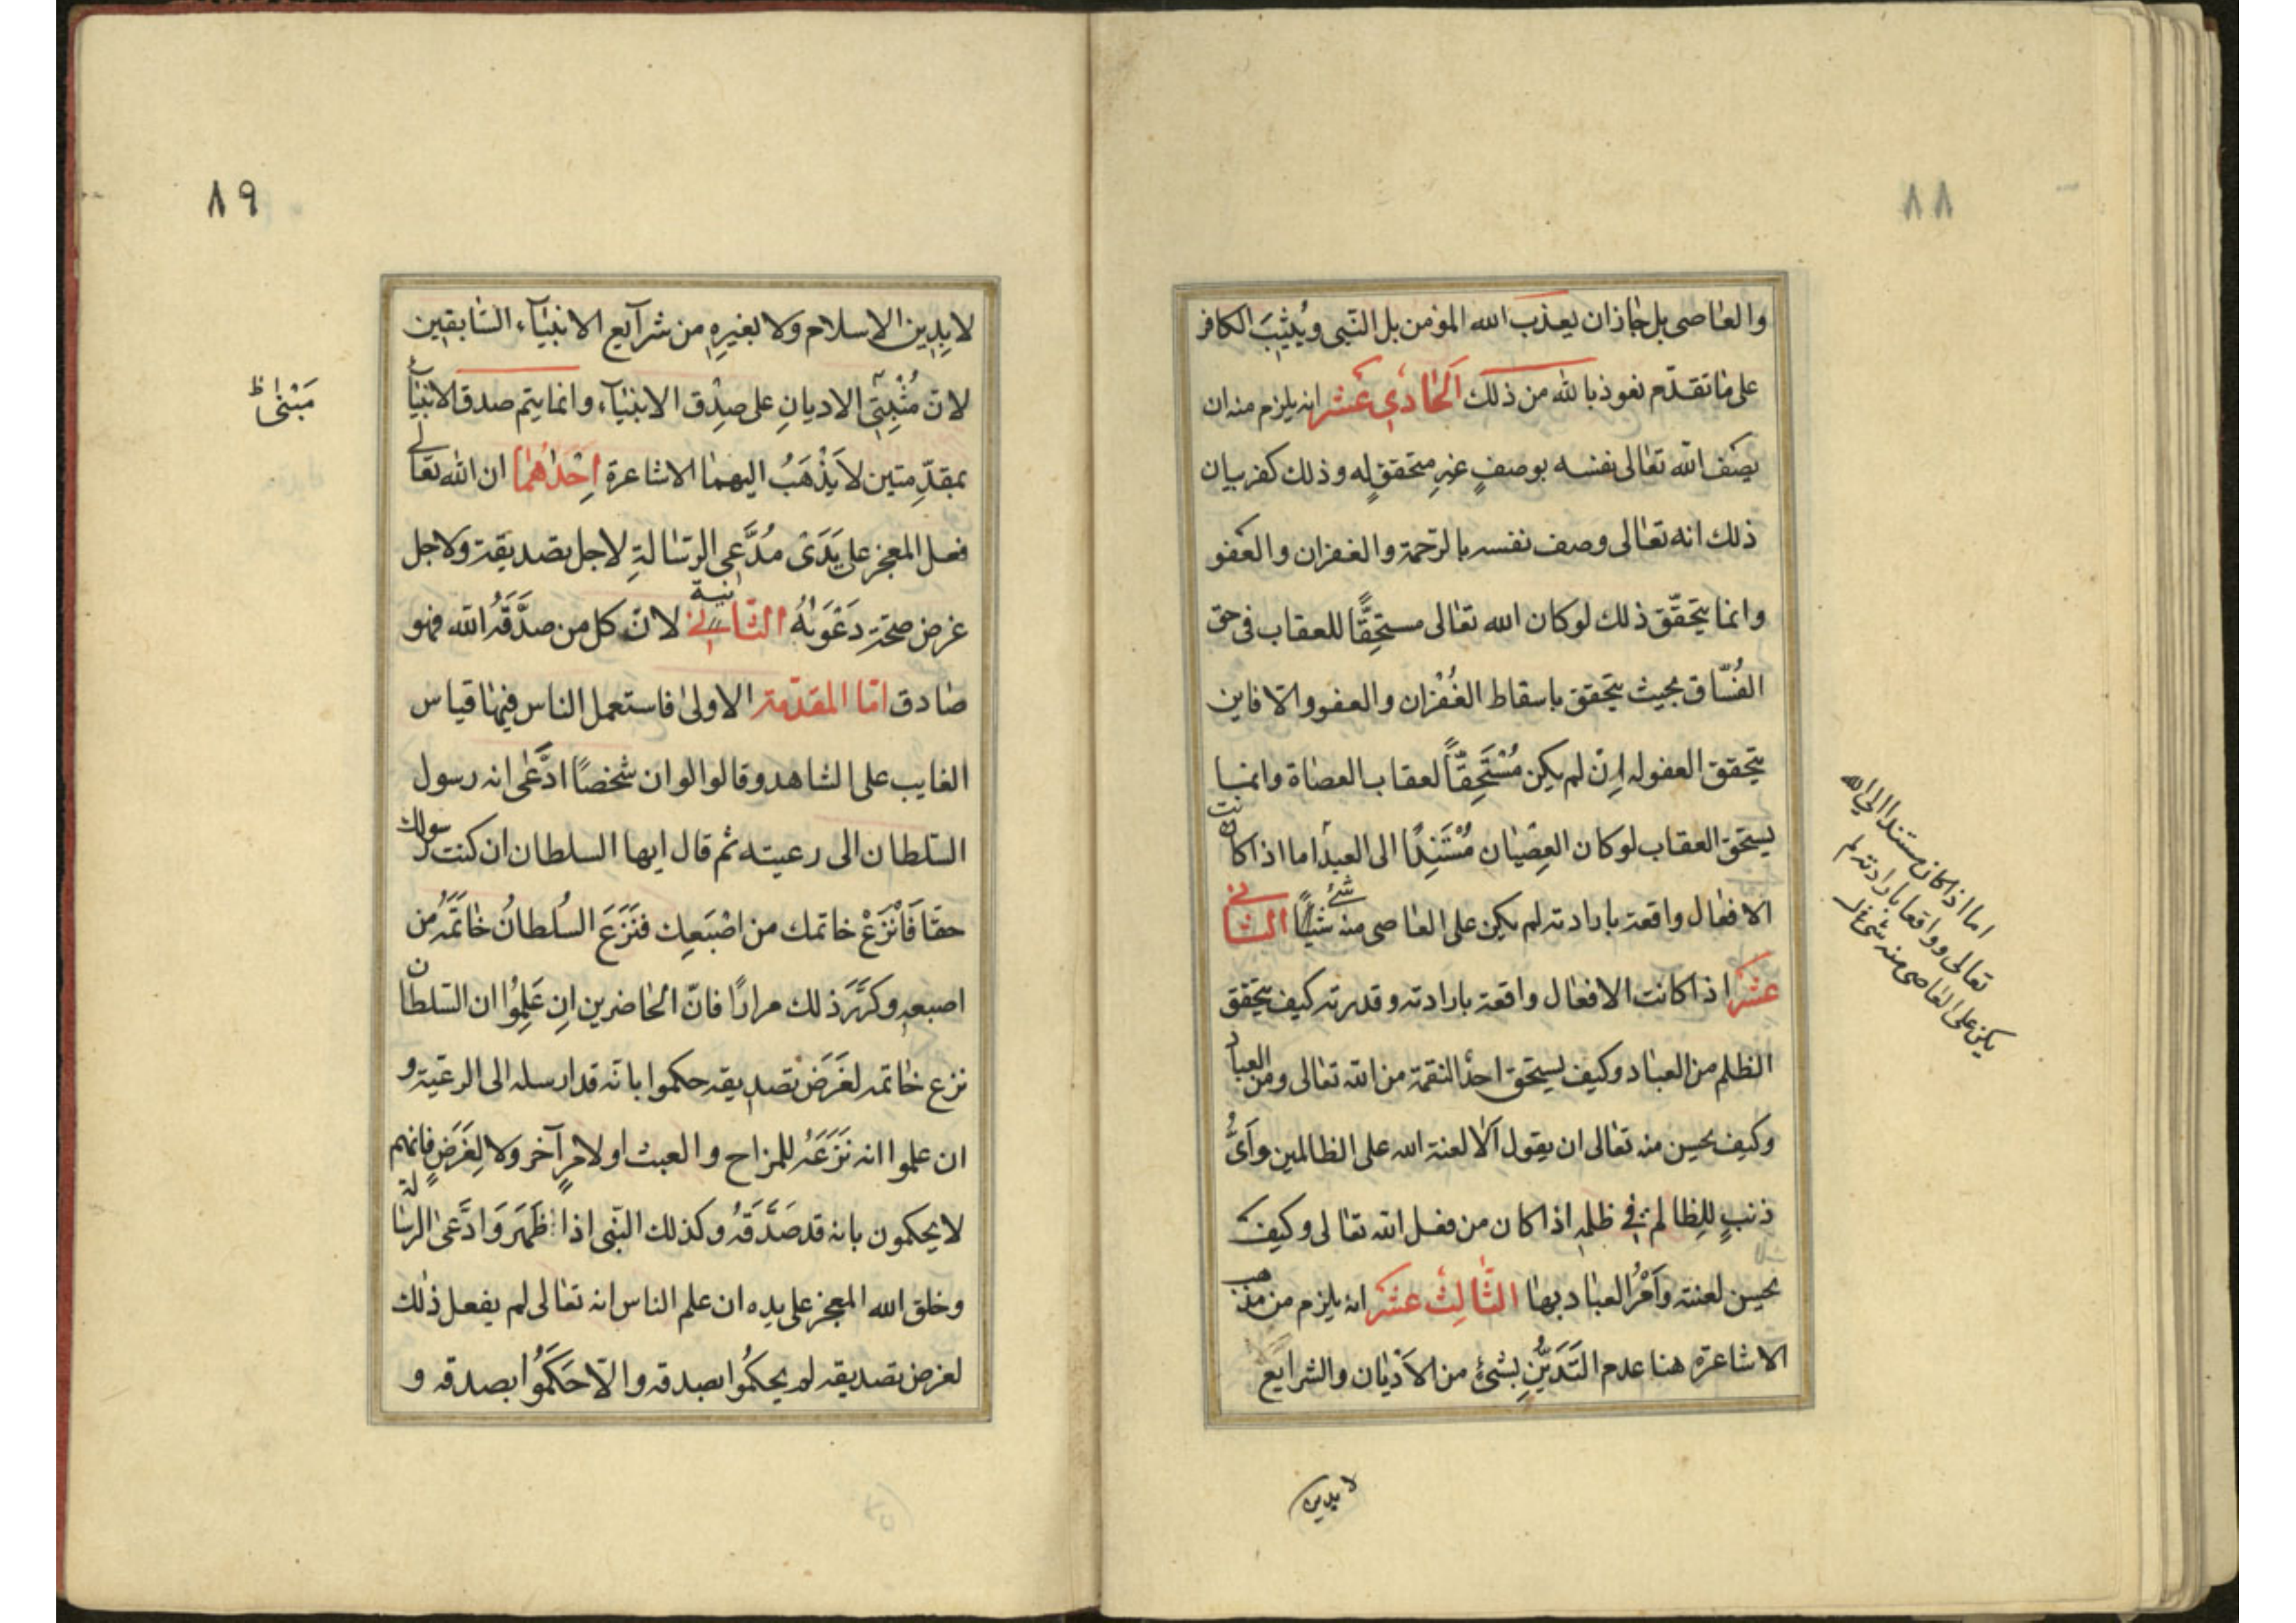 ٨٨
والعاصى بل جاز ان يعذب الله المؤمن بل النّبى ويُثيبَ الكافر
على ما تقدّم نعوذ بالله من ذلك الحَادي عَشر انه يلزم منه ان
يصف الله تعالى نفسه بوصفٍ غيرِ متحققٍ له وذلك كفر بيان
ذلك انه تعالى وصف نفسه بالرّحمة والغفران والعفو
وانما يتحقّق ذلك لو كان الله تعالى مستحِقًّا للعقاب فى حق
الفُسّاق بحيث يتحقق باسقاط الغُفْران والعفو والّا فاين
يتحقق العفو له اِنْ لم يكن مُسْتَحِقًّا لعقاب العصاة وانما
يستحق العقاب لو كان العِصْيان مُسْتَنِدًا الى العبد اما اذا كانت
الافعال واقعة بارادته لم يكن على العاصى منه شيئًا شئ الثانى
عشر اذا كانت الافعال واقعة بارادته وقدرته كيف يتحقق
الظلم من العباد وكيف يستحق احدٌ النقمة من الله تعالى ومن العباد
وكيف يحسن منه تعالى ان يقول اَلَا لعنة الله على الظالمين وَاَىُّ
ذنبٍ للظالم فى ظلمِه اذا كان من فعل الله تعالى وكيف
يحسن لعنته وَاَمْرُ العباد بها الثّالِث عَشر انه يلزم من مذهب
الاشاعرة هنا عدم التَدَيُّنِ بشئٍ من الاَدْيان والشرايع
اما اذا كان مستندا الى الله
تعالى وواقعا بارادته لم
يكن على العاصى منه شئ
لا بدين
٨٩
لا بِدِين الاسلام ولا بغيرِهِ من شرآيع الانبيآء السّابقين
لانّ مُثْبِتِى الاديانِ على صِدْق الانبيآء وانما يتم صدق الانبيآء
بمقدّمتين لا يَذْهَبُ اليهما الاشاعرة اِحْدٰاهُما ان الله تعالى
فعل المعجز على يَدَىْ مُدَّعِى الرّسالةِ لاجل تصديقه ولاجل
غرض صحّة دَعْوَاهُ الثّانية لانّ كل من صدَّقَهُ الله فهو
صادق امّا المقدّمة الاولىٰ فاستعمل الناس فيها قياس
الغايب على الشاهد وقالوا لو ان شخصًا ادَّعٰى انه رسول
السّلطان الى رعيته ثم قال ايها السلطان ان كنت رسولك
حقّا فَانْزَعْ خاتمك من اصْبَعِك فنَزَعَ السُلطانُ خَاتَمَهُ من
اصبعِه وكرَّرَ ذلك مرارًا فانّ الحاضرين اِن عَلِمُوا ان السّلطان
نزع خاتمه لغَرَض تصديقه حكموا بانّه قد ارسله الى الرعيّة و
ان علموا انه نَزَعَهُ للمزاح والعبث او لامرٍ آخر ولا لِغَرَضٍ فانهم
لا يحكمون بانه قد صَدَّقَهُ وكذلك النّبى اذا ظَهَرَ وَادَّعىٰ الرسالة
وخلق الله المعجز على يده ان علم الناس انه تعالى لم يفعل ذٰلك
لغرض تصديقه لم يحكُموا بصدقه والّا حَكَمُوا بصدقه و
مَبْنٰى ظ